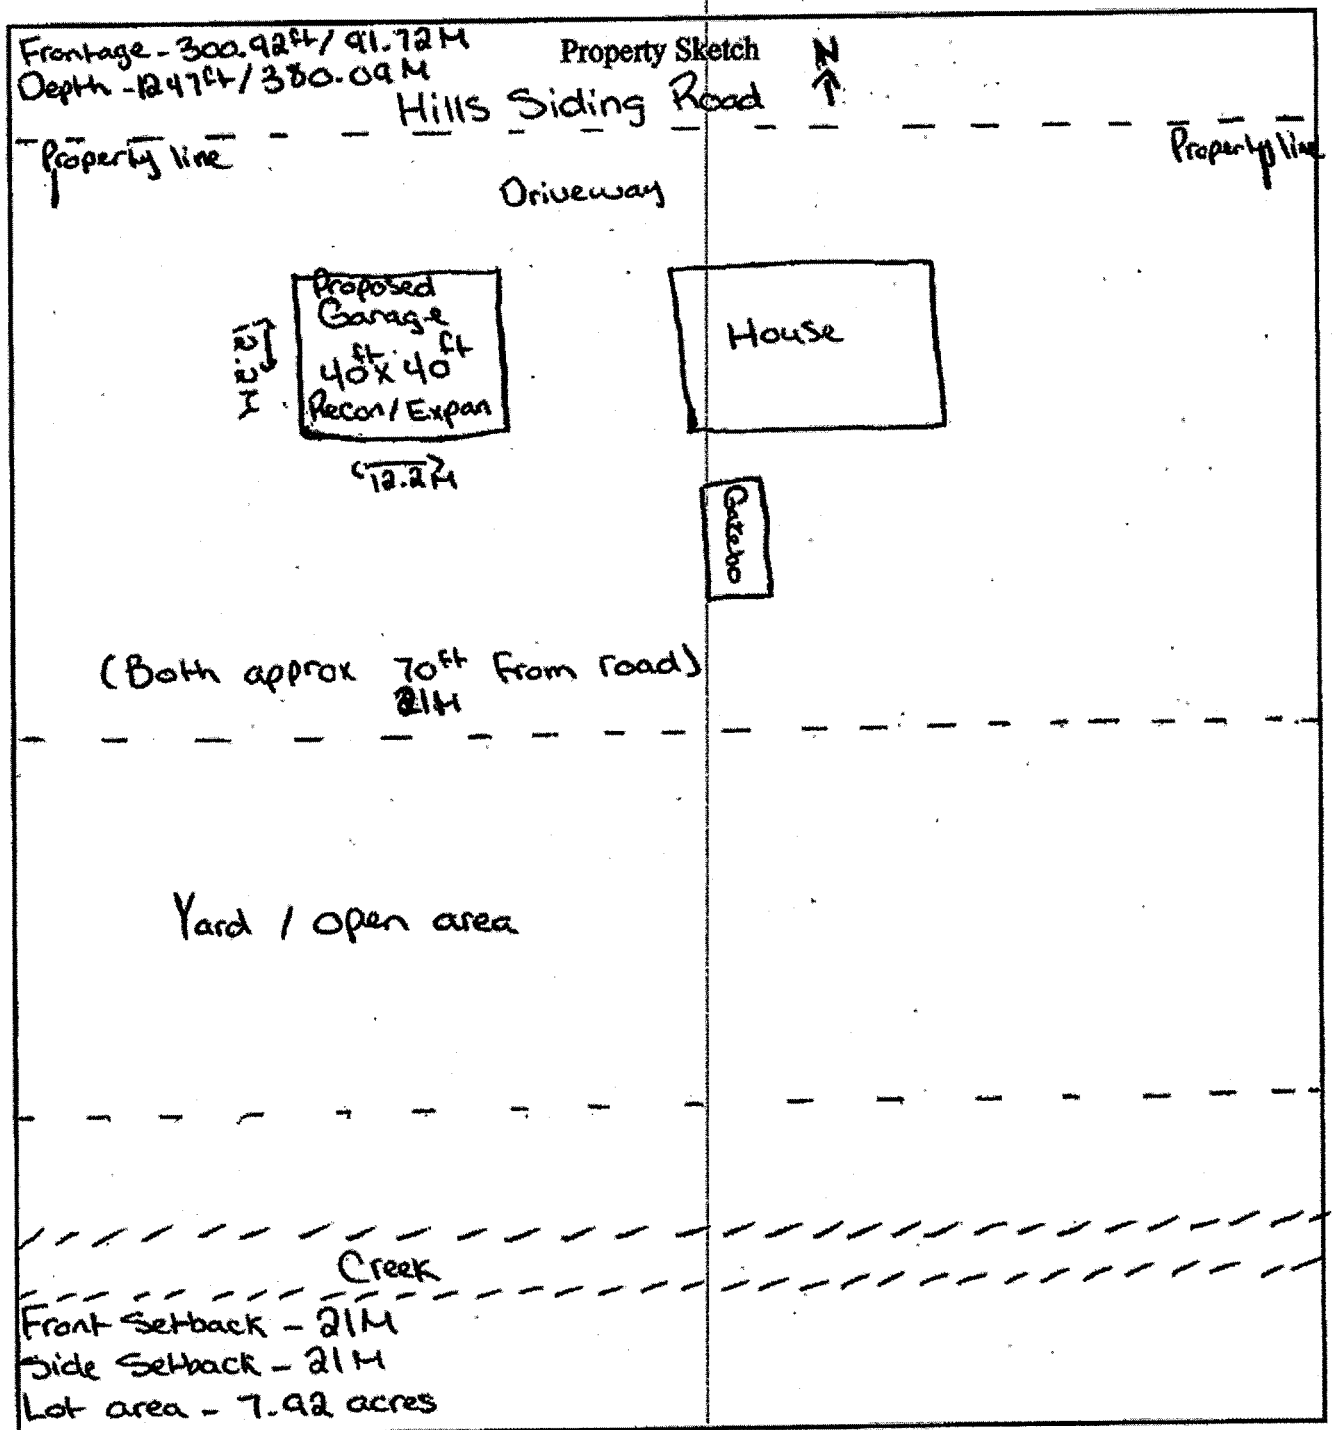 Frontage - 300.92ft / 91.72M
Depth - 1247ft / 380.09M
Property Sketch
N
Hills Siding Road
Property line
Property line
Driveway
Proposed
Garage
40ft x 40ft
Recon / Expan
12.2M
12.2M
House
Gazebo
(Both approx 70ft from road)
21M
Yard / open area
Creek
Front Setback - 21M
Side Setback - 21M
Lot area - 7.92 acres